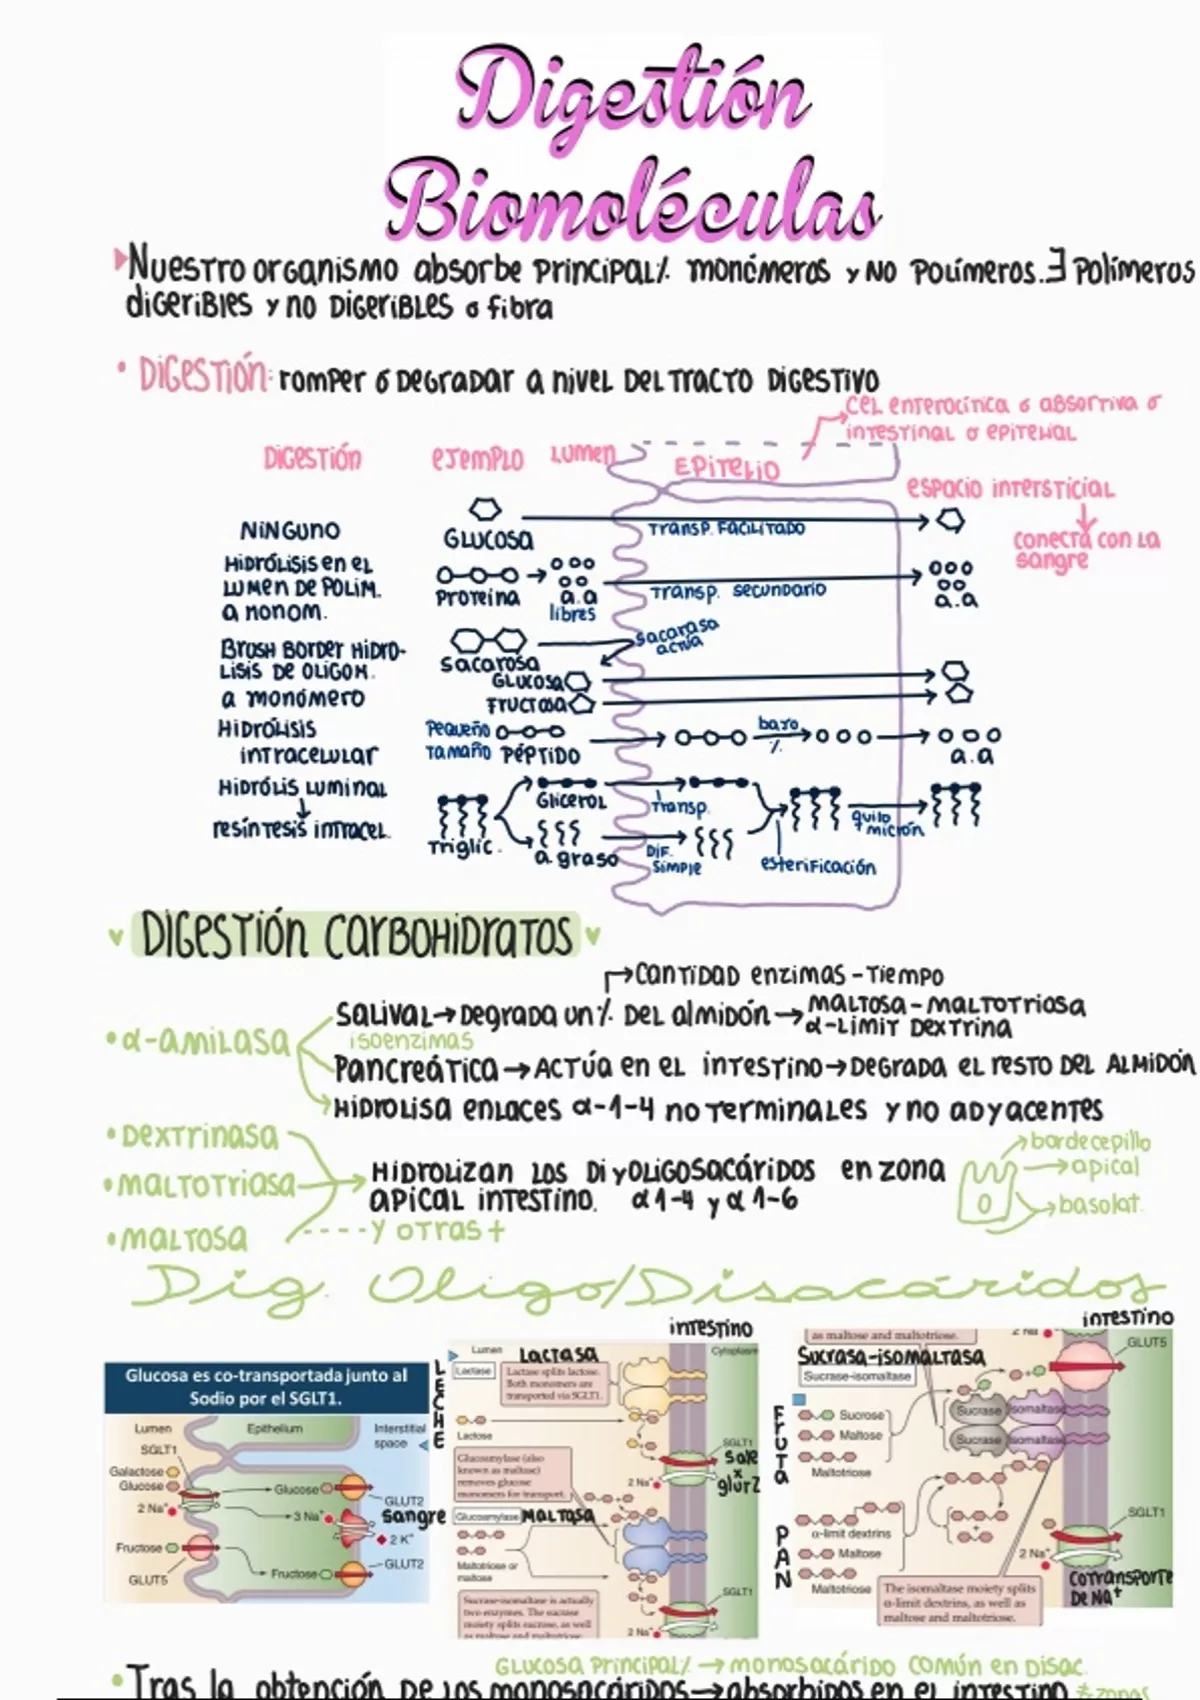 Digestión
Biomoléculas
Nuestro organismo absorbe principal% monómeros y no polímeros.∃ polímeros
digeribles y no digeribles o fibra
• Digestión: romper o degradar a nivel del tracto digestivo
cel enterocítica o absortiva o
intestinal o epitelial
Digestión ejemplo Lumen Epitelio
espacio intersticial
conecta con la
sangre
Ninguno
Glucosa
Transp. Facilitado
Hidrólisis en el
lumen de polim.
a nonom.
Proteina
a.a
libres
Transp. secundario
a.a
Brush Border hidro-
lisis de oligom.
a monómero
sacarosa
sacarasa
actúa
Glucosa
Fructosa
Hidrólisis
intracelular
Pequeño
Tamaño péptido
bajo
%
a.a
Hidrólis luminal
resíntesis intracel.
Triglic.
Glicerol
a graso
Transp.
Dif.
simple
esterificación
quilo
micrón
Digestión carbohidratos
Cantidad enzimas - tiempo
• α-amilasa
Salival → Degrada un % del almidón → maltosa - maltotriosa
α-limit dextrina
isoenzimas
Pancreática → Actúa en el intestino → Degrada el resto del almidón
Hidrolisa enlaces α-1-4 no terminales y no adyacentes
• Dextrinasa
• maltotriasa
• maltosa
Hidrolizan los di y oligosacáridos en zona
apical intestino. α1-4 y α1-6
---- y otras +
borde cepillo
apical
basolat.
Dig. Oligo/Disacáridos
Glucosa es co-transportada junto al
Sodio por el SGLT1.
Lumen
Epithelium
Interstitial
space
SGLT1
Galactose
Glucose
2 Na+
Fructose
GLUT5
Glucose
3 Na+
Fructose
GLUT2
sangre
2 K+
GLUT2
LECHE
intestino
Lumen
Lactasa
Cytoplasm
Lactase
Lactase splits lactose.
Both monomers are
transported via SGLT1.
Lactose
SGLT1
sale
x
2 Na+
Glucoamylase (also
known as maltase)
removes glucose
monomers for transport.
Glucoamylase
Maltasa
Maltotriose or
maltose
SGLT1
Sucrase-isomaltase is actually
two enzymes. The sucrase
moiety splits sucrose, as well
as maltose and maltotriose.
2 Na+
FRUTA
PAN
intestino
as maltose and maltotriose.
2 Na
GLUT5
Sucrasa-isomaltasa
Sucrase-isomaltase
Sucrose
Maltose
Maltotriose
Sucrase
Isomaltase
Sucrase
Isomaltase
α-limit dextrins
Maltose
Maltotriose
SGLT1
2 Na+
cotransporte
de Na+
The isomaltase moiety splits
α-limit dextrins, as well as
maltose and maltotriose.
Glucosa principal% → monosacárido común en disac.
• Tras la obtención de los monosacáridos → absorbidos en el intestino * zonas